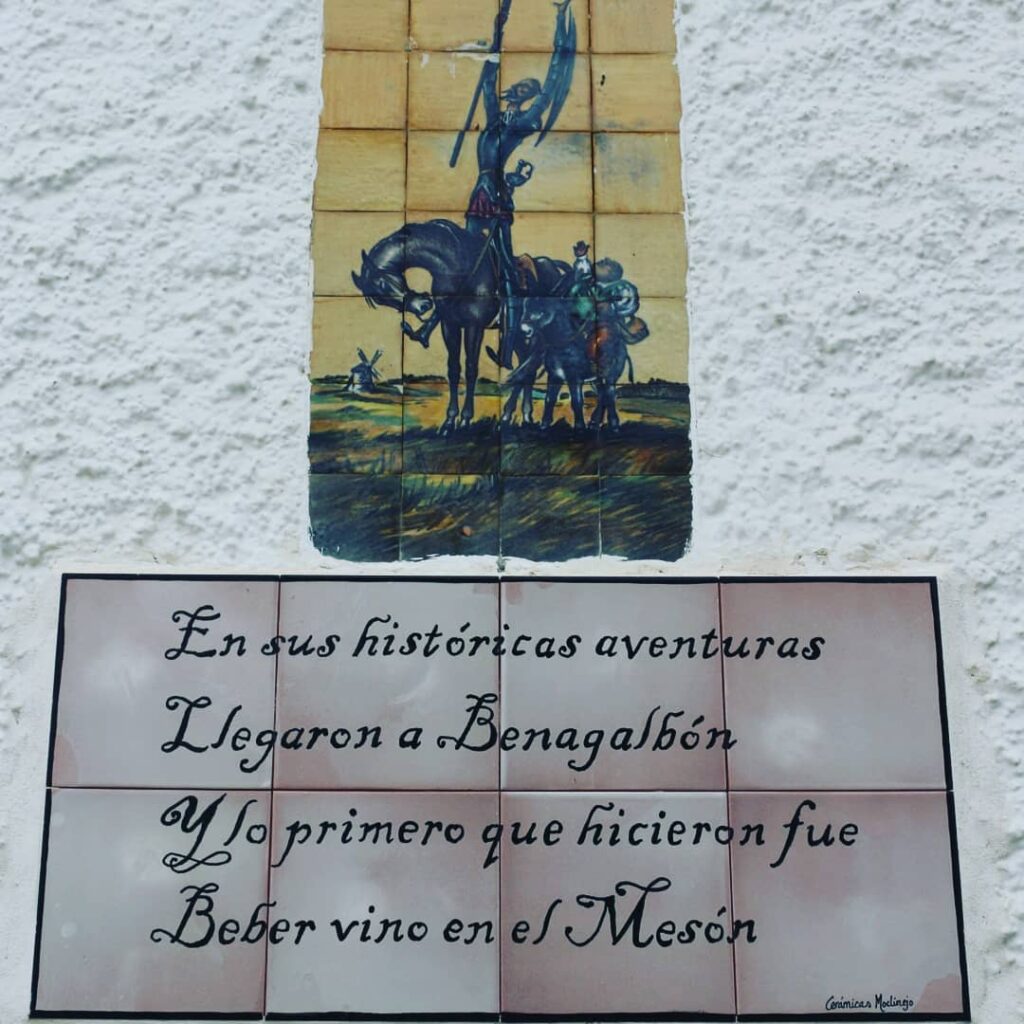 En sus históricas aventuras
Llegaron a Benagalbón
Y lo primero que hicieron fue
Beber vino en el Mesón
Cerámicas Moclinejo